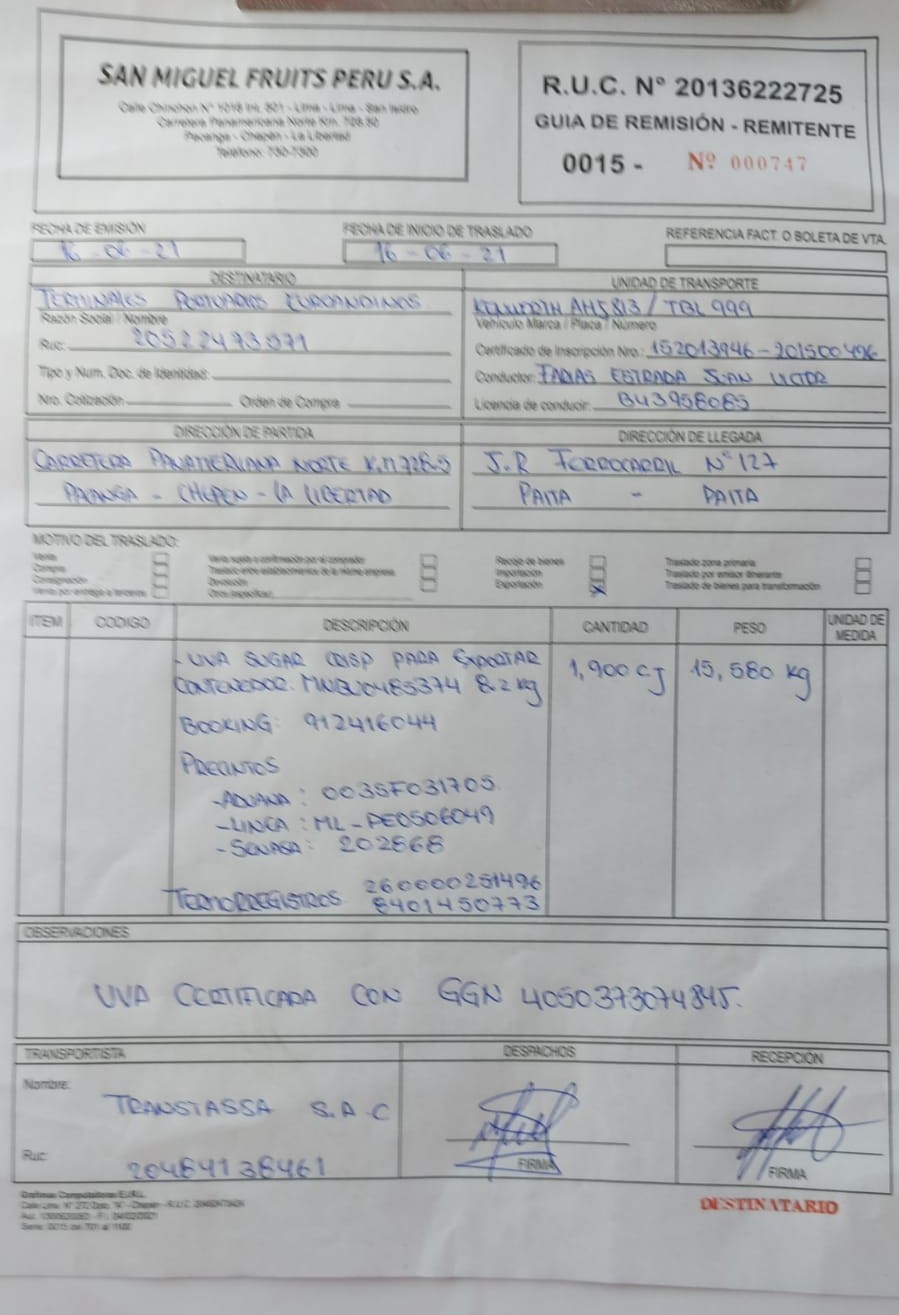 SAN MIGUEL FRUITS PERU S.A.
Carretera Panamericana Norte Km. 728.50
Pacanga - Chepén - La Libertad
Teléfono: 730-7300
R.U.C. Nº 20136222725
GUIA DE REMISIÓN - REMITENTE
0015 - Nº 000747
FECHA DE EMISIÓN
16 - 06 - 21
FECHA DE INICIO DE TRASLADO
16 - 06 - 21
REFERENCIA FACT. O BOLETA DE VTA.
DESTINATARIO
TERMINALES PORTUARIOS EUROANDINOS
Razón Social / Nombre
Ruc: 20522473571
Tipo y Num. Doc. de Identidad:
Nro. Cotización Orden de Compra
UNIDAD DE TRANSPORTE
KENWORTH AHS813 / TBL 999
Vehículo Marca / Placa / Número
Certificado de Inscripción Nro.: 152013946 - 201500496
Conductor: FARIAS ESTRADA JUAN VICTOR
Licencia de conducir: B43958085
DIRECCIÓN DE PARTIDA
CARRETERA PANAMERICANA NORTE K.m 728.5
PACANGA - CHEPEN - LA LIBERTAD
DIRECCIÓN DE LLEGADA
J.R FERROCARRIL Nº 127
PAITA - PAITA
MOTIVO DEL TRASLADO:
Venta
Compra
Consignación
Venta por entrega a terceros
Venta sujeta a confirmación por el comprador
Traslado entre establecimientos de la misma empresa
Devolución
Otros (especificar)
Recojo de bienes
Importación
Exportación X
Traslado zona primaria
Traslado por emisor itinerante
Traslado de bienes para transformación
ITEM CODIGO DESCRIPCIÓN CANTIDAD PESO UNIDAD DE MEDIDA
- UVA SUGAR CRISP PARA EXPORTAR 1,900 CJ 15,580 Kg
CONTENEDOR: MNBU0485374 8.2 Kg
BOOKING: 912416044
PRECINTOS
- ADUANA: 0035F031705
- LINEA: ML-PE0506049
- SENASA: 202868
TERMORREGISTROS 260000251496
8401450773
OBSERVACIONES
UVA CERTIFICADA CON GGN 4050373074845.
TRANSPORTISTA
Nombre:
TRANSTASSA S.A.C
Ruc: 20484138461
DESPACHOS
FIRMA
RECEPCIÓN
FIRMA
Serie: 0015 del 701 al 1100
DESTINATARIO